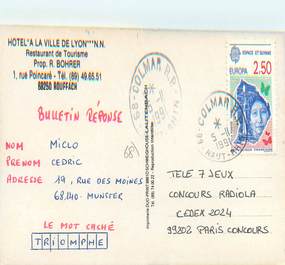 HÔTEL "A LA VILLE DE LYON" **N.N.
Restaurant de Tourisme
Prop. R. BOHRER
1, rue Poincaré - Tél. (89) 49.65.51
68250 ROUFFACH
BULLETIN RÉPONSE
NOM MICLO
PRENOM CEDRIC
ADRESSE 19, RUE DES MOINES
68.140. MUNSTER
LE MOT CACHÉ
TRIOMPHE
68 COLMAR R.P.
HAUT-RHIN
EUROPA 2.50
68 COLMAR
TELE 7 JEUX
CONCOURS RADIOLA
CEDEX 2024
99202 PARIS CONCOURS